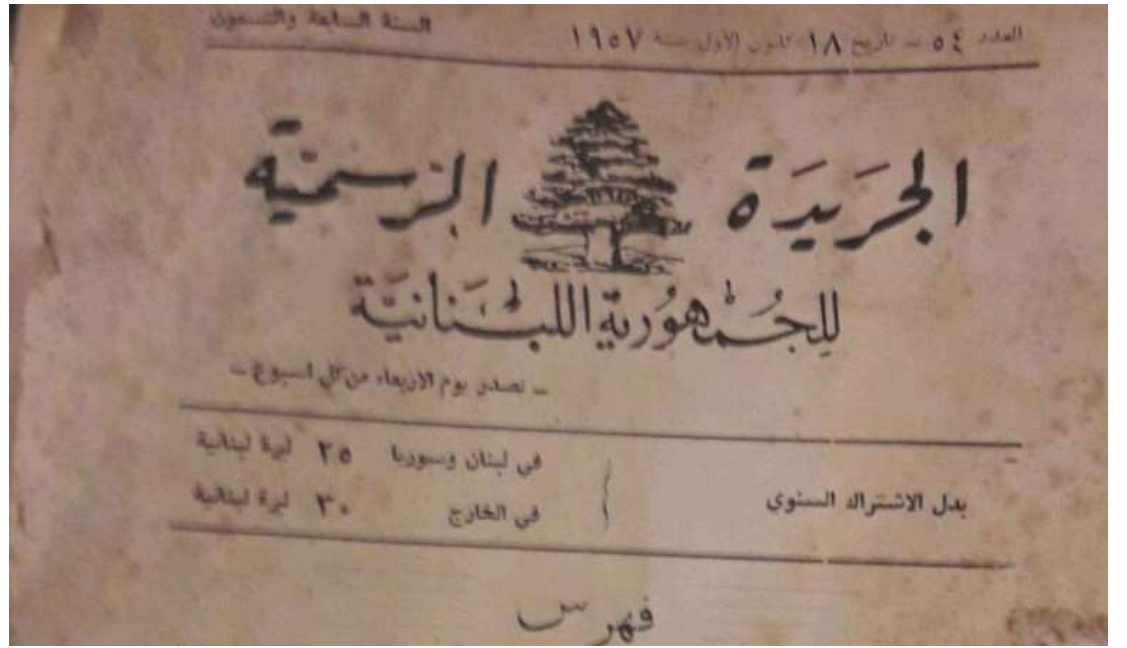 العدد ٥٤ – تاريخ ١٨ كانون الاول سنة ١٩٥٧
السنة السابعة والتسعون
الجَرَيدَة الرَسميَّة
للِجُمهُوريّة اللبْنَانيَّة
– تصدر يوم الاربعاء من كل اسبوع –
بدل الاشتراك السنوي
في لبنان وسوريا ٢٥ ليرة لبنانية
في الخارج ٣٠ ليرة لبنانية
فهرس